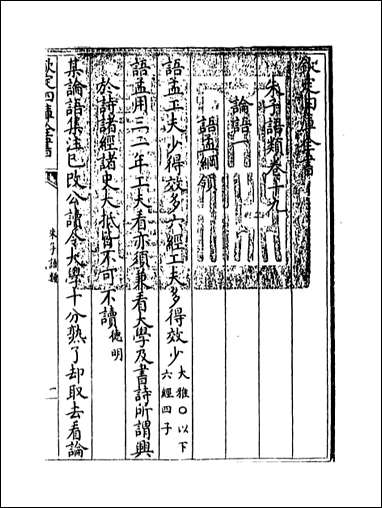 欽定四庫全書
朱子語類卷十九
論語一
語孟綱領
語孟工夫少得效多六經工夫多得效少大雅〇以下六經四子
語孟用三二年工夫看亦須兼看大學及書詩所謂興
於詩諸經諸史大抵皆不可不讀德明
某論語集注已改公讀令大學十分熟了却取去看論
欽定四庫全書
朱子語類